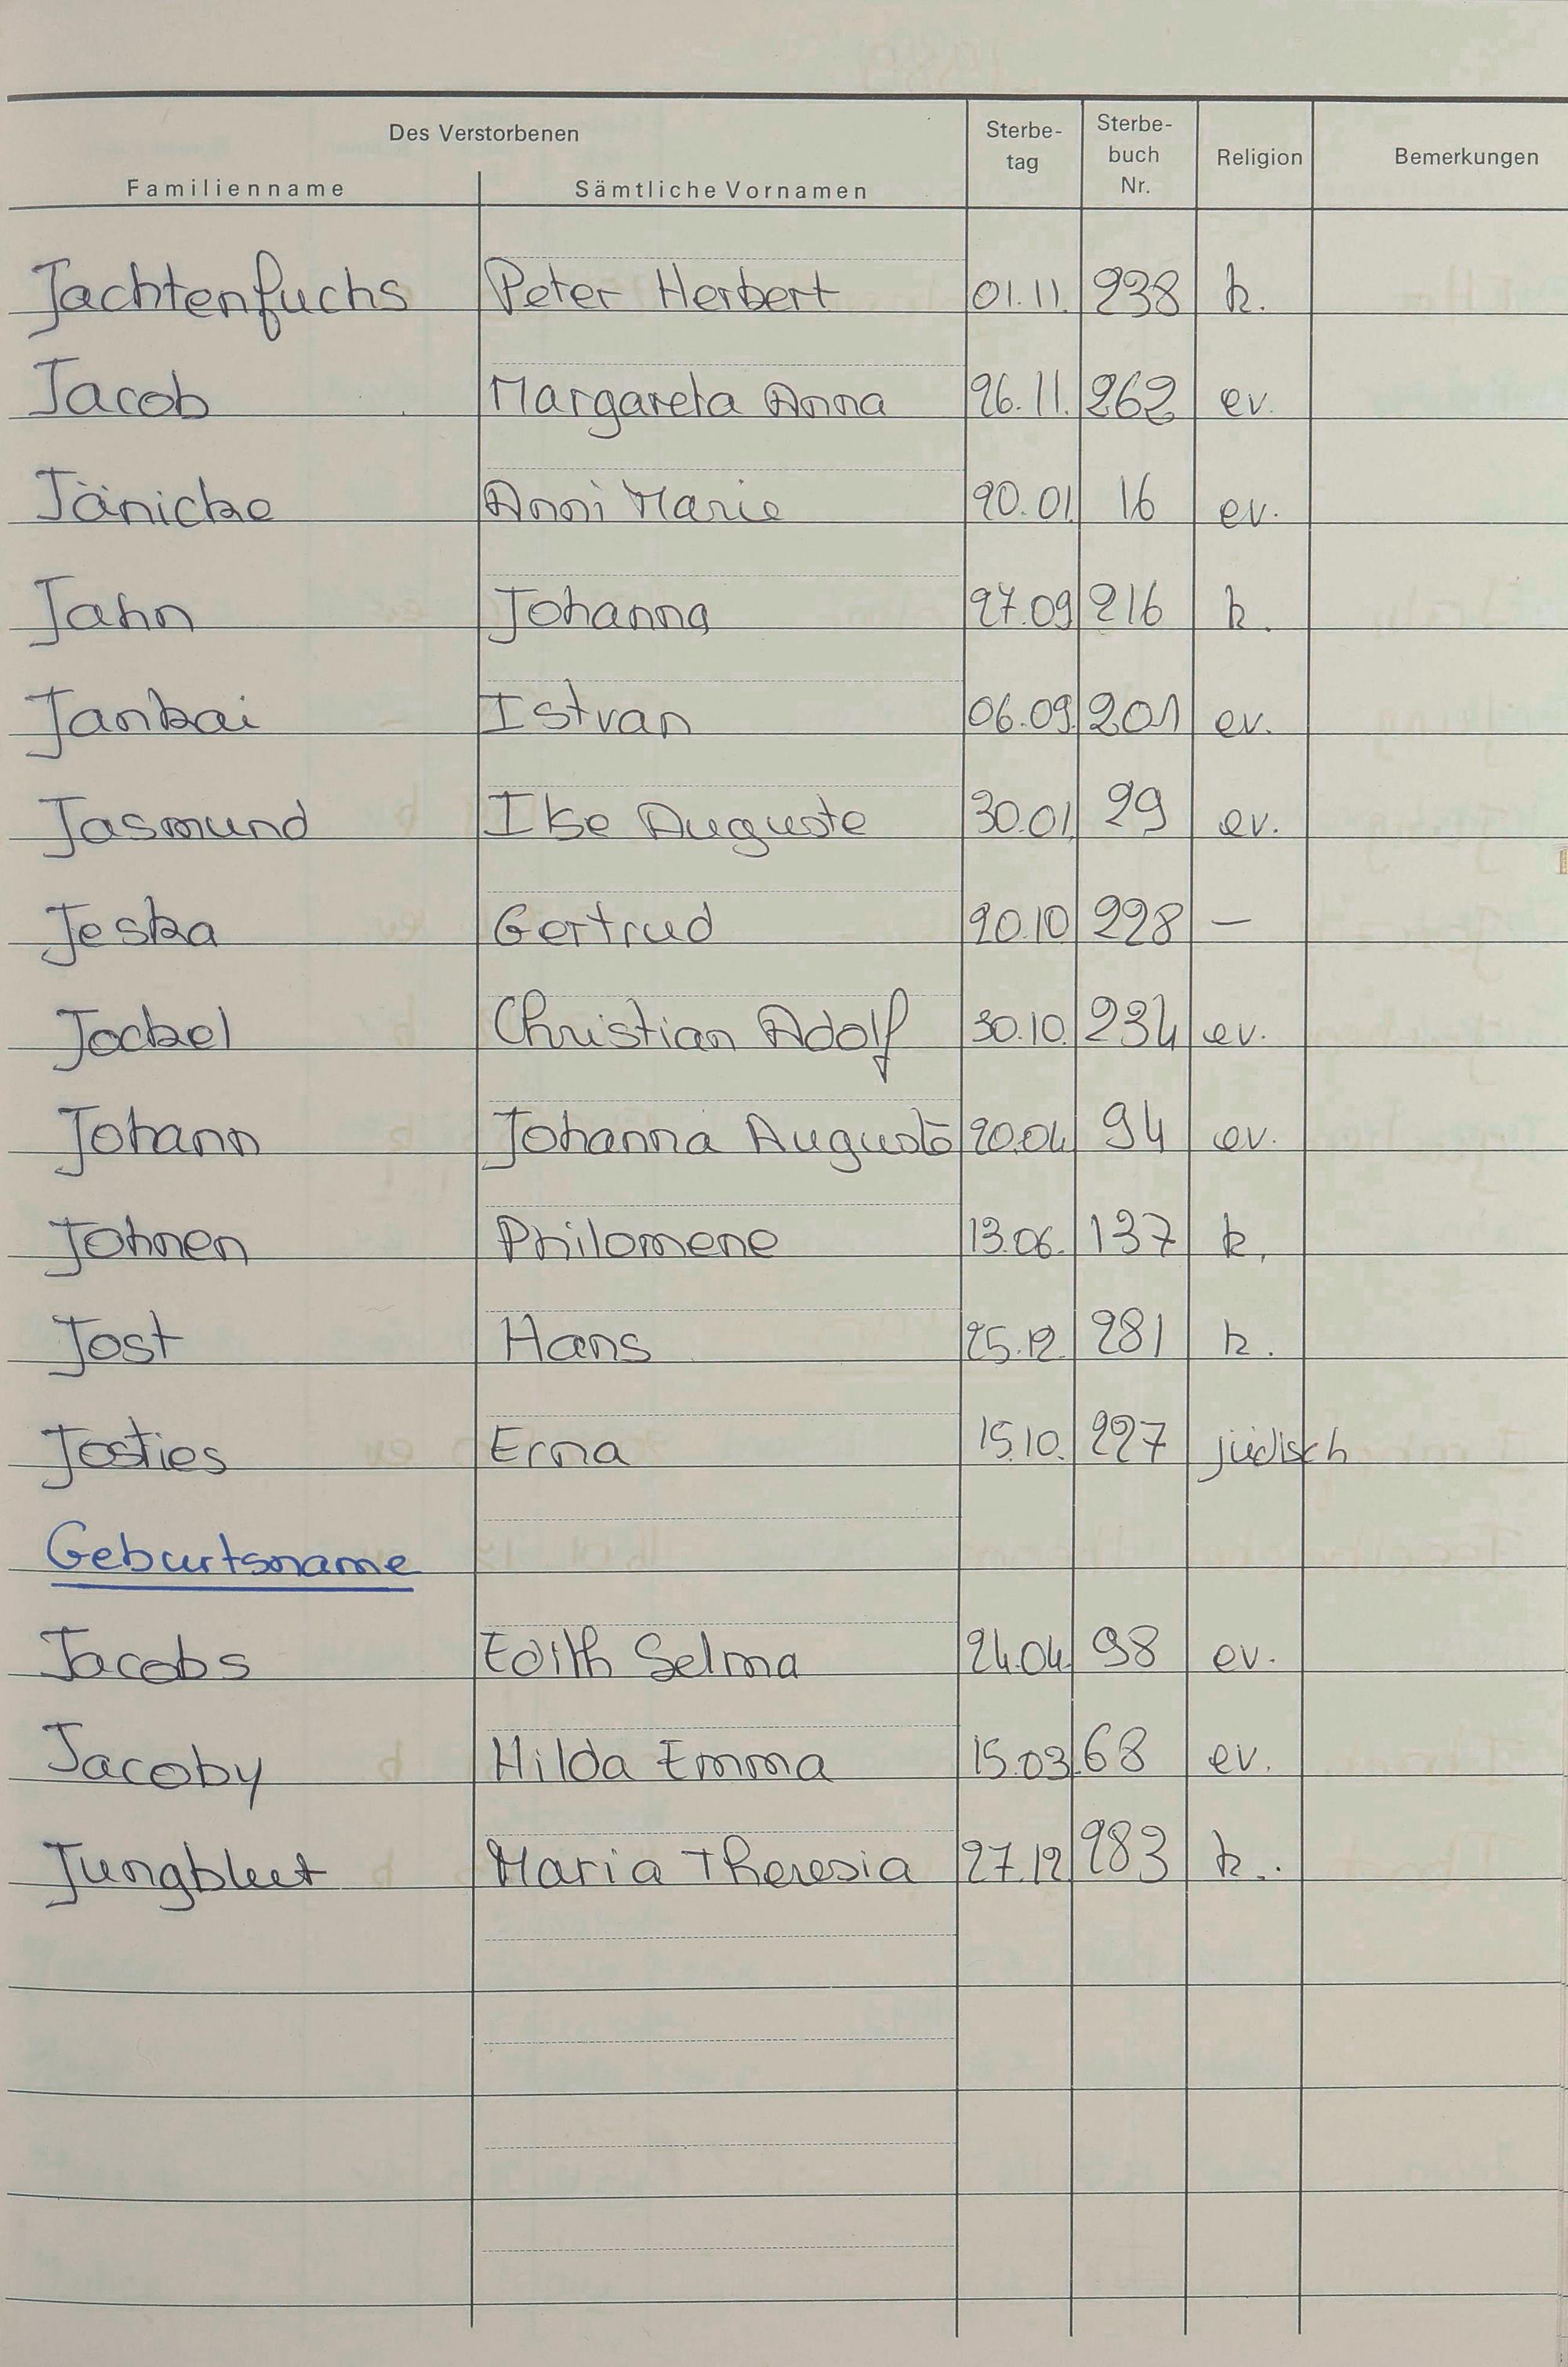 Des Verstorbenen
Familienname Sämtliche Vornamen Sterbe-tag Sterbe-buch Nr. Religion Bemerkungen
Jachtenfuchs Peter Herbert 01.11. 238 k.
Jacob Margareta Anna 26.11. 262 ev.
Jänicke Anni Marie 20.01. 16 ev.
Jahn Johanna 27.09 216 k.
Jankai Istvan 06.09. 201 ev.
Jasmund Ilse Auguste 30.01. 29 ev.
Jeska Gertrud 20.10 228 –
Jockel Christian Adolf 30.10. 234 ev.
Johann Johanna Auguste 20.04. 94 ev.
Johnen Philomene 13.06. 137 k.
Jost Hans 25.12. 281 k.
Josties Erna 15.10. 227 jüdisch
Geburtsname
Jacobs Edith Selma 24.04. 98 ev.
Jacoby Hilda Emma 15.03. 68 ev.
Jungblut Maria Theresia 27.12. 283 k.